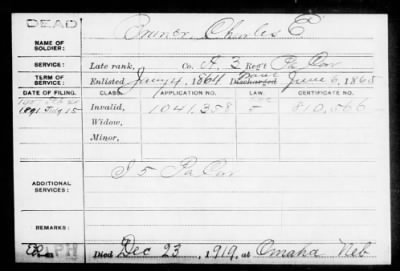 DEAD
NAME OF SOLDIER: Charles E
SERVICE: Late rank, Co. A. 3 Reg't Pa Cav
TERM OF SERVICE: Enlisted 4, 1864 Discharged June 6, 1865
DATE OF FILING. CLASS. APPLICATION NO. LAW. CERTIFICATE NO.
1891 July 15 Invalid, 1041,358 810,566
Widow,
Minor,
ADDITIONAL SERVICES: I 5 Pa Cav
REMARKS:
Died Dec 23, 1919, at Omaha Neb